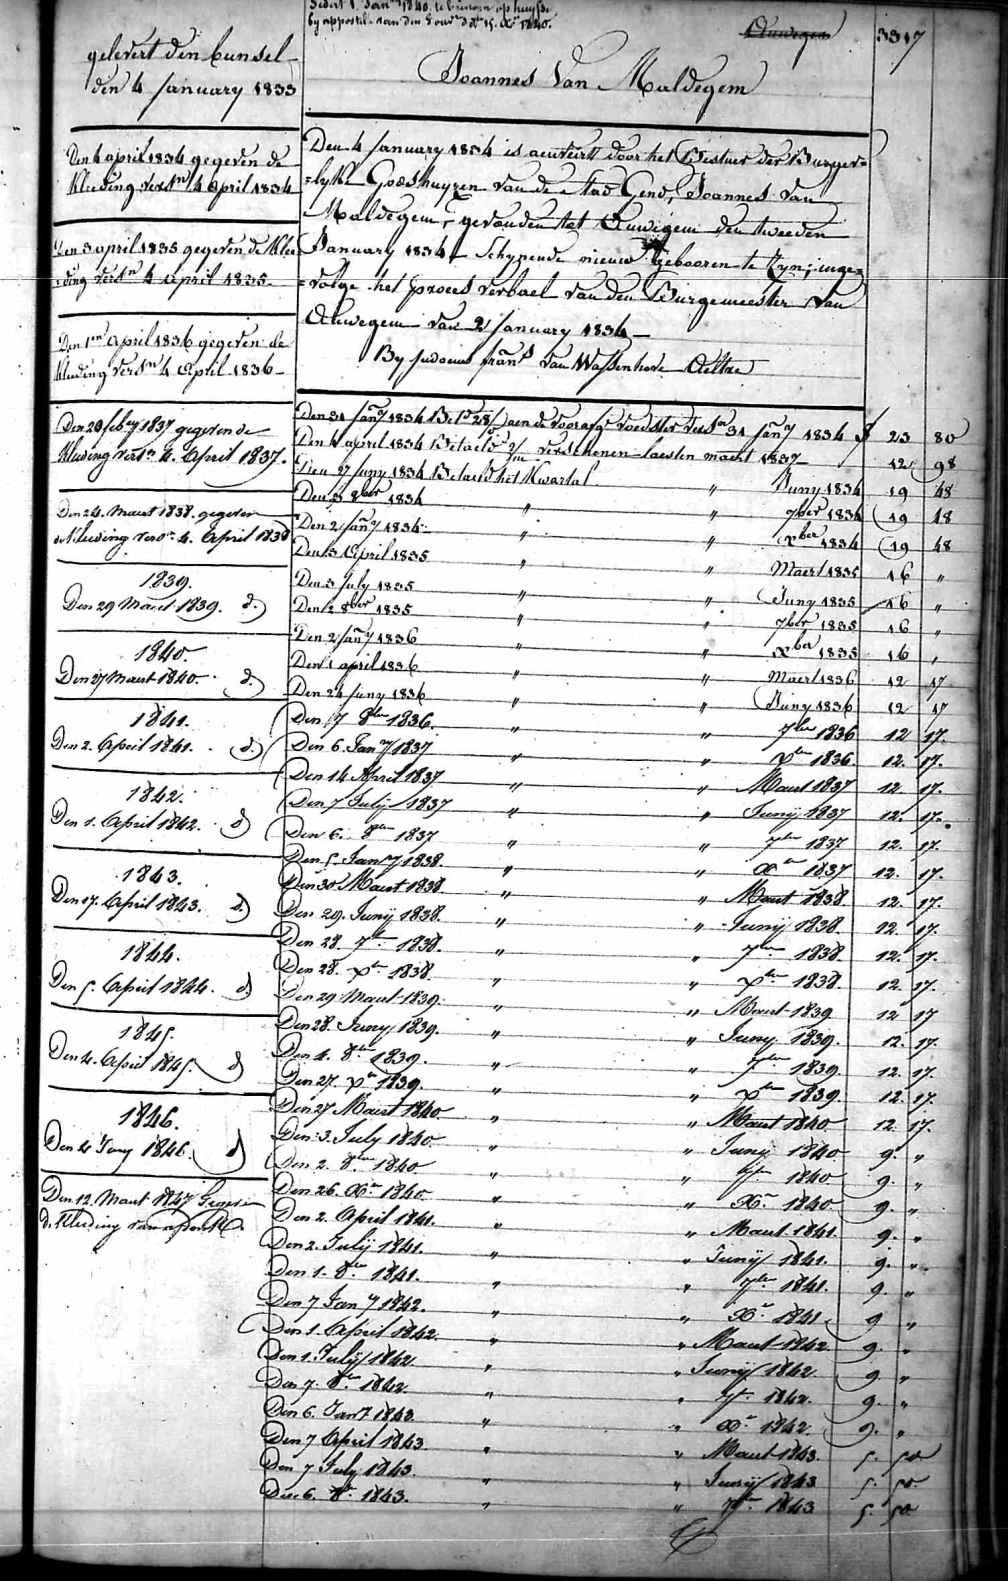 gelevert den bunsel
den 4 january 1833
Den 4 april 1834 gegeven de
kleeding verstn 4 April 1834
Den 3 april 1835 gegeven de klee
=ding verstn 4 april 1835
Den 1en April 1836 gegeven de
kleeding verstn 4 April 1836
Den 28 feby 1837 gegeven de
kleeding verstn 4. April 1837.
Den 24. Maert 1838. gegeven
de kleeding versn. 4. April 1838
1839.
Den 29 Maert 1839. d.
1840.
Den 27 Maert 1840. d.
1841.
Den 2. April 1841. d
1842.
Den 1. April 1842. d
1843.
Den 07. April 1843. d
1844.
Den 5. April 1844. d
1845.
Den 4. April 1845. d
1846.
Den 4 1846. d
Den 12. Maert 1847
d. kleeding van
Sedert 1. Janry 1840.
by appostil van den 15. 1840.
Auwegem 3317
Joannes Van Maldegem
Den 4 January 1834 is door het Bestuer der Burger=
=lyke Godshuyzen van de Stad Gend, Joannes van
Maldegem, gevonden tot Auwigem den tweeden
January 1834 Schynende nieuw Gebooren te Zyn; inge=
=volge het proces verbael van den Burgemeester van
Auwegem van 2 January 1834
By franś van Wassenhove Aeltre
Den 31 Jany 1834 Bet. aen de voorafge voedster verstn 31 Jany 1834 f 23 80
Den 4 april 1834 Betaeld verschenen laesten maert 1834 12 98
Den 27 Juny 1834 Betaeld het Kwartal " Juny 1834 19 48
Den 3 8ber 1834 " " 7ber 1834 19 48
Den 2 Jany 1834 " " Xber 1834 19 48
Den 3 April 1835 " " Maert 1835 16 "
Den 3 July 1835 " " Juny 1835 16 "
Den 2 8ber 1835 " " 7ber 1835 16 "
Den 2 Jany 1836 " " Xber 1835 16 "
Den 1 april 1836 " " Maert 1836 12 17
Den 24 Juny 1836 " " Juny 1836 12 17
Den 7 8ber 1836. " " 7ber 1836 12 17.
Den 6. Jany 1837 " " Xber 1836. 12. 17.
Den 14 April 1837 " " Maert 1837 12 17.
Den 7 Julij 1837 " " Junij 1837 12. 17.
Den 6. 8ber 1837 " " 7ber 1837 12. 17.
Den 5. Jany 1838. " " Xber 1837 12. 17.
Den 30 Maert 1838 " " Maert 1838. 12. 17.
Den 29. Junij 1838. " " Junij 1838. 12. 17.
Den 28. 7ber 1838. " " 7ber 1838 12. 17.
Den 28. Xber 1838. " " Xber 1838. 12. 17.
Den 29 Maert 1839. " " Maert 1839 12 17
Den 28. Juny 1839. " " Juny 1839. 12. 17.
Den 4. 8ber 1839. " " 7ber 1839. 12. 17.
Den 27. Xber 1839. " " Xber 1839. 12. 17.
Den 27 Maert 1840 " " Maert 1840 12. 17.
Den 3. July 1840 " " Junij 1840 9. "
Den 2. 8ber 1840 " " 7br 1840 9. "
Den 26. Xbr 1840. " " Xbr. 1840. 9. "
Den 2. April 1841. " " Maert 1841. 9. "
Den 2. Julij 1841. " " Junij 1841. 9. "
Den 1. 8ber 1841. " " 7ber 1841. 9. "
Den 7 Jany 1842. " " Xbr. 1841 9 "
Den 1. April 1842. " " Maert 1842 9. "
Den 1. Julij 1842 " " Junij 1842 9. "
Den 7. 8ber 1842. " " 7br. 1842. 9. "
Den 6. Jany 1843. " " Xbr 1842. 9. "
Den 7 April 1843 " " Maert 1843. 5. 50
Den 7 July 1843 " " Junij 1843 5. 50.
Den 6. 8br. 1843. " " 7ber 1843 5. 50